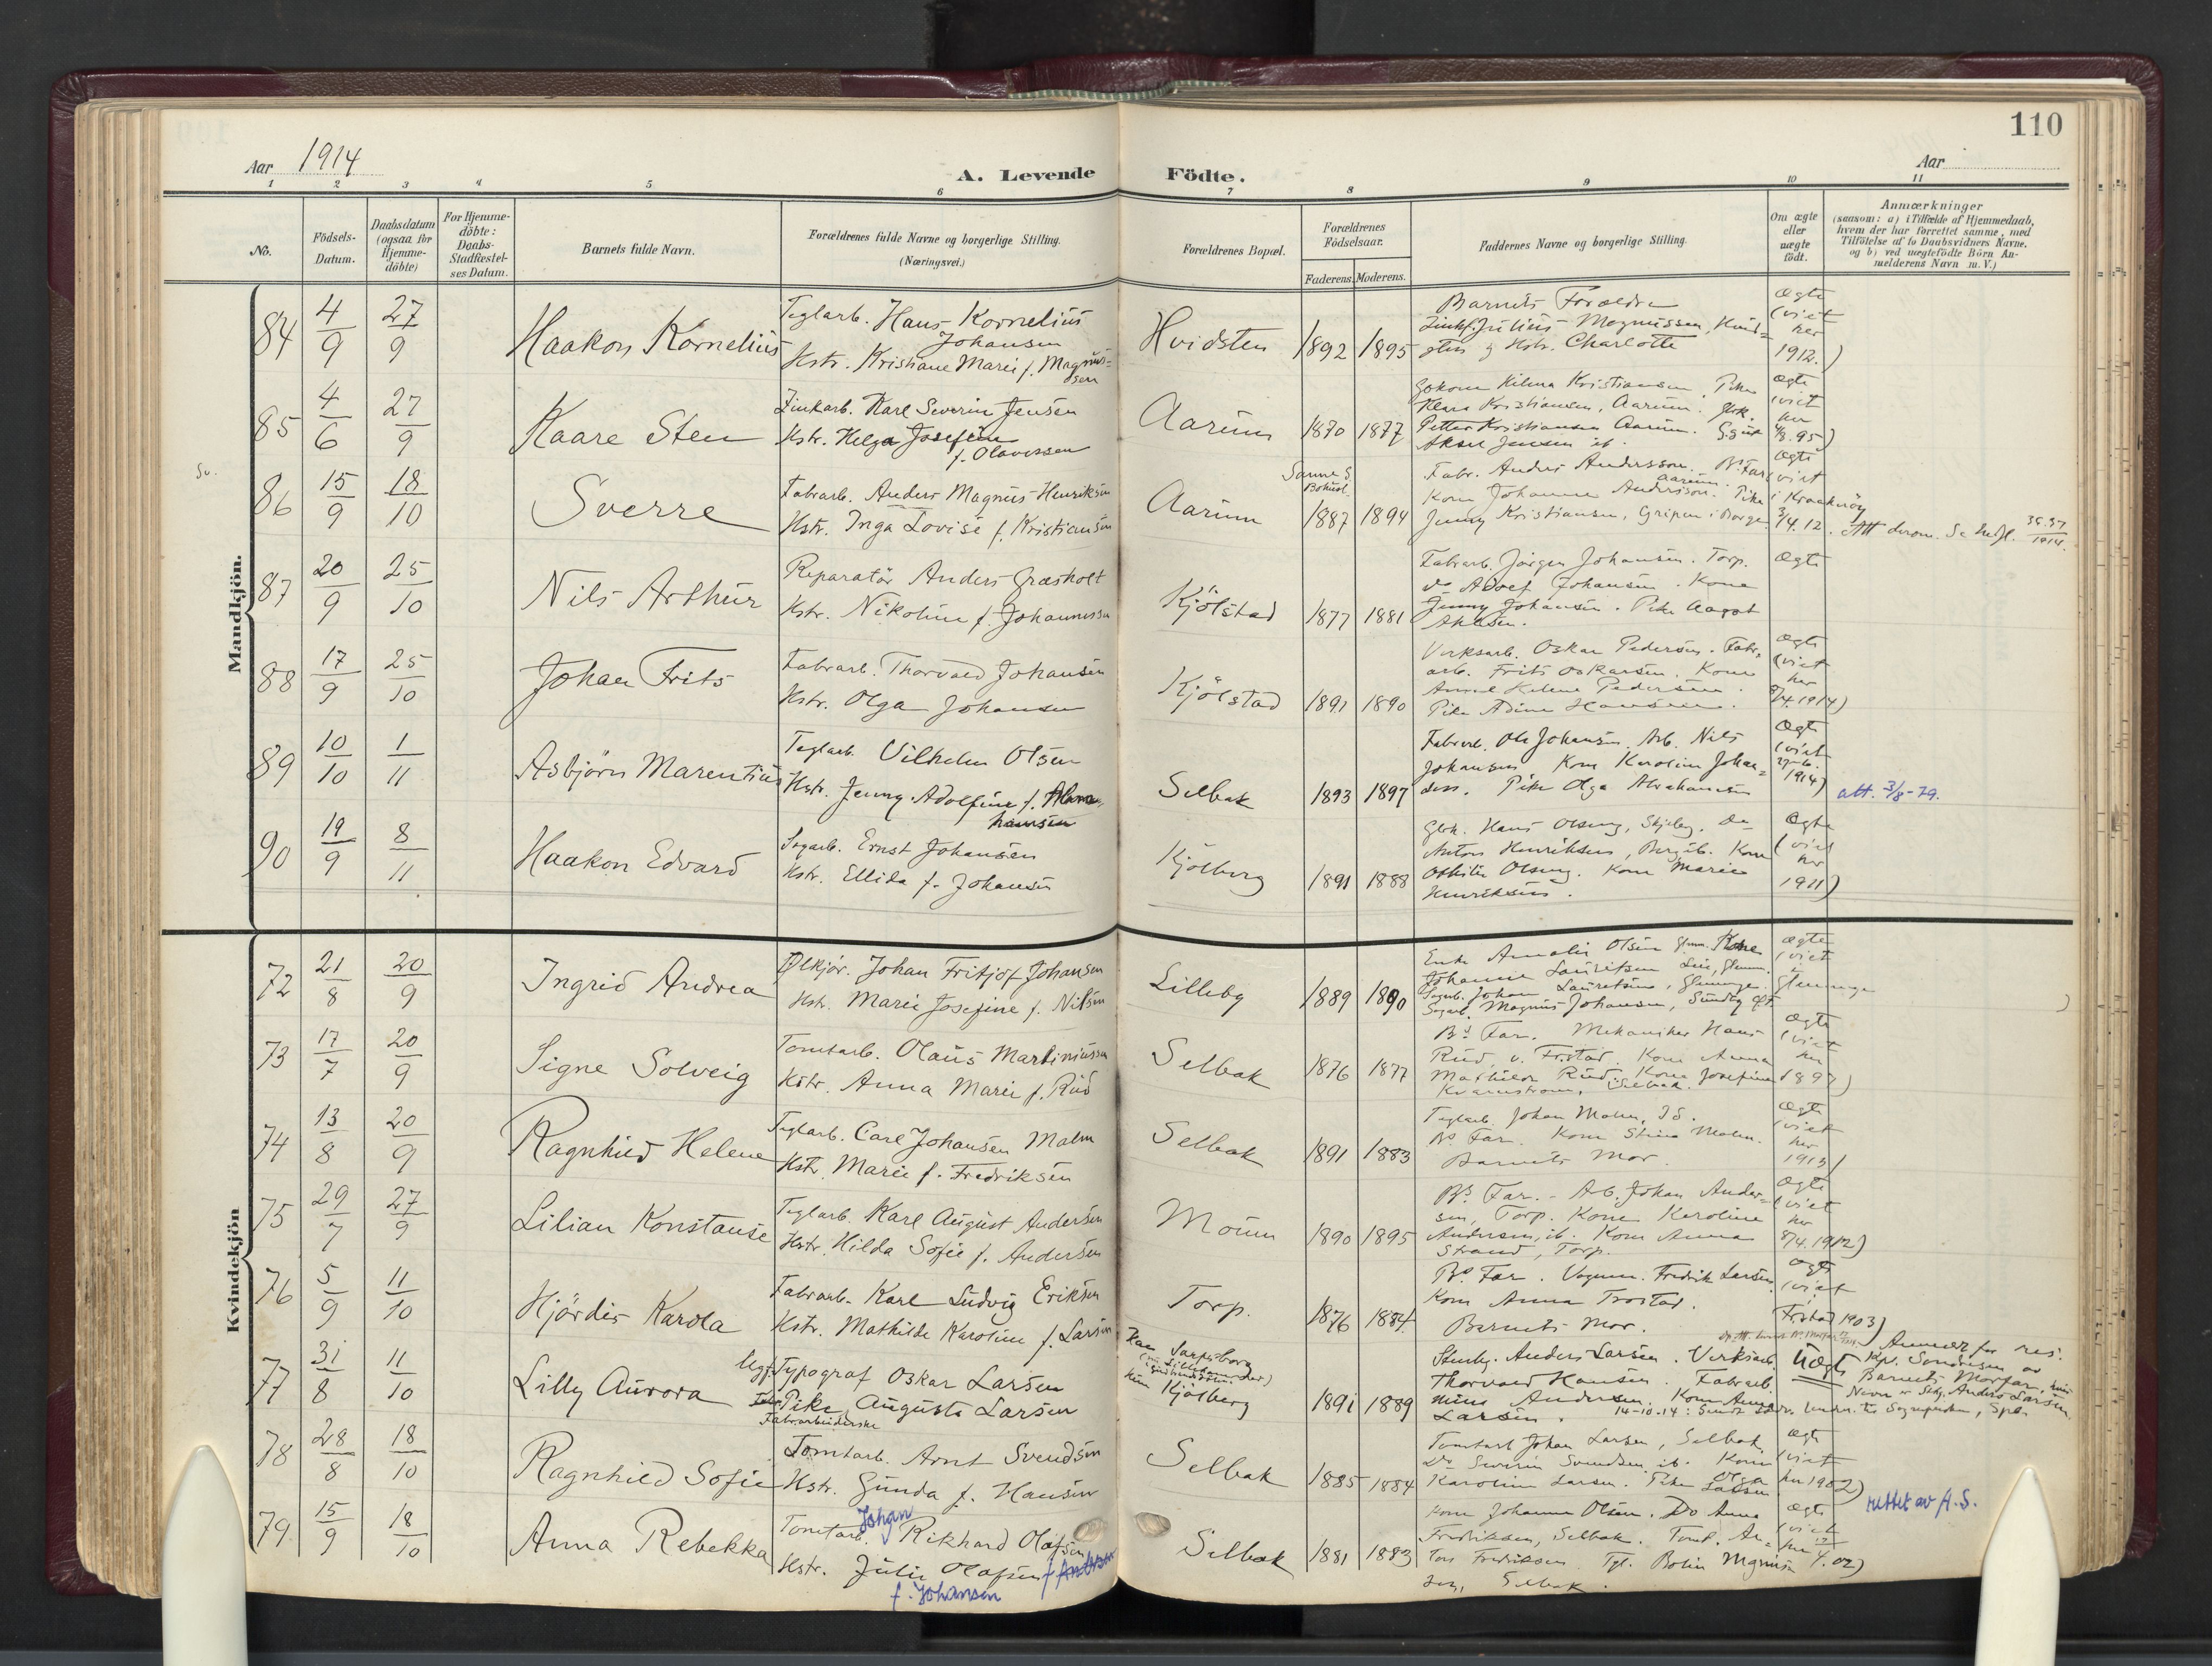 110
Aar 1914
Aar
A. Levende Födte.
1 2 3 4 5 6 7 8 9 10 11
No.
Födsels-
Datum.
Daabsdatum
(ogsaa for
Hjemme-
döbte)
For Hjemme-
döbte:
Daabs-
Stadfæstel-
ses Datum.
Barnets fulde Navn.
Forældrenes fulde Navne og borgerlige Stilling.
(Næringsvei.)
Forældrenes Bopæl.
Forældrenes
Födselsaar.
Faderens. Moderens.
Faddernes Navne og borgerlige Stilling.
Om ægte
eller
uægte
födt.
Anmærkninger
(saasom: a) i Tilfælde af Hjemmedaab,
hvem der har forrettet samme, med
Tilföielse af to Daabsvidners Navne.
og b) ved uægtefödte Börn An-
melderens Navn m. V.)
Mandkjön.
84 4/9 27/9 Haakon Kornelius
Teglarb. Hans Kornelius
Johansen
Hstr. Kristiane Marie f. Magnus-
sen
Hvidsten 1892 1895
Barnets Forældre
Julius Magnussen, Hvid-
sten g Hstr. Charlotte
Ægte
(viet
her
1912.)
85 4/6 27/9 Kaare Sten
Zinkarb. Karl Severin Jensen
Hstr. Helga Josefine
f. Olavessen
Aarum 1870 1877
Gbkone Hilma Kristiansen. Pike
Klara Kristiansen, Aarum. Gbk.
Petter Kristiansen Aarum.
Aksel Jensen ib.
Ægte
(viet
her
4/8. 95)
Sv.
86 15/9 18/10 Sverre
Fabrarb. Anders Magnus Henriksen
Hstr. Inga Lovise f. Kristiansen
Sanne S.
Bohusl.
Aarum 1887 1894
Fabr. Anders Andersson. Bs Far
Aarum.
Kone Johanne Andersson. Pike
Jenny Kristiansen, Gripen i Borge
Ægte
(viet
i Kraakeröy
3/4. 12.
Att derom. Se hefl. 36.37/1914.
87 20/9 25/10 Nils Arthur
Reparatör Anders Græsholt
Hstr. Nikoline f. Johannessen
Kjölstad 1877 1881
Fabrarb. Jörgen Johansen. Torp.
do Adolf Johansen. Kone
Jenny Johansen. Pike Aagot
Ægte
88 17/9 25/10 Johan Frits
Fabrarb. Thorvald Johansen
Hstr. Olga Johansen
Kjölstad 1891 1890
Verksarb. Oskar Pedersen. Fabr.
arb. Frits Oskarsen. Kone
Helene Pedersen.
Pike Adine Hansen.
Ægte
(viet
her
8/4. 1914)
89 10/10 1/11 Asbjörn Marentius
Teglarb. Vilhelm Olsen
Hstr. Jenny Adolfine f. Abra-
hamsen
Selbak 1893 1897
Fabrarb. Ole Johansen. Arb. Nils
Johansen Kone Karoline Johan-
sen. Pike Olga Abrahamsen
Ægte
(viet
27-6.
1914)
att. 3/8-79.
90 19/9 8/11 Haakon Edvard
Sagarb. Ernst Johansen
Hstr. Ellida f. Johansen
Kjölberg 1891 1888
Gbk. Hans Olseng, Skjeberg. Do
Anton Henriksen, Kone
Othilie Olseng. Kone Marie
Henriksen.
Ægte
(viet
her
1911)
Kvindekjön
72 21/8 20/9 Ingrid Andrea
Ölkjör. Johan Fritjof Johansen
Hstr. Marie Josefine f. Nilsen
Lilleby 1889 1890
Enke Amalie Olsen Glemm. Kone
Johanne Lauritsen Lie, Glemm.
Sagarb. Johan Lauritsen, Glemminge.
Sagarb. Magnus Johansen,
Ægte
(viet
i
Glemminge
)
73 17/7 20/9 Signe Solveig
Tomtarb. Olaus Martiniussen
Hstr. Anna Marie f. Rud
Selbak 1876 1877
Bs Far. Mekaniker Hans
Rud, v. Fr.stad. Kone Anna
Mathilde Rud, Kone Josefine
Kvarnström, Selbak.
Ægte
(viet
her
1897)
74 13/8 20/9 Ragnhild Helene
Teglarb. Carl Johansen Malm
Hstr. Marie f. Fredriksen
Selbak 1891 1883
Teglarb. Johan Malm, I S.
Bs Far. Kone Stina Malm.
Barnets Mor
Ægte
(viet
her
1913)
75 29/7 27/9 Lilian Konstanse
Teglarb. Karl August Andersen
Hstr. Hilda Sofie f. Andersen
Moum 1890 1895
Bs Far. - Ab. Johan Ander-
sen, Torp. Kone Karoline
Andersen, ib. Kone Anna
Strand, Torp.
Ægte
(viet
her
8/4. 1912)
76 5/9 11/10 Hjördis Karola
Fabrarb. Karl Ludvig Eriksen
Hstr. Mathilde Karoline f. Larsen
Torp. 1876 1884.
Bs Far. Vognm. Fredrik Larsen.
Kone Anna Trostad.
Barnets Mor.
Ægte
(viet
i
Fr.stad 1903)
77 31/8 11/10 Lilly Aurora
Ugf. Typograf Oskar Larsen
Pike Augusta Larsen
Fabrarbeiderske
Han Sarpsborg
hun Kjölberg
1891 1889
Stenhg. Anders Larsen. Verksarb.
Thorvald Hansen. Fabrarb.
Andersen. Kone Anna
Larsen.
Uægte
Anmeldt for res.
Kpl. Sondresen av
Barnets Morfar, hvis
Navn er Stenhg. Anders Larsen.
78 28/8 18/10 Ragnhild Sofie
Tomtarb. Arnt Svendsen
Hstr. Gunda f. Hansen
Selbak 1885 1884
Tomtarb Johan Larsen, Selbak.
Do Severin Svendsen ib. Kone
Karoline Larsen. Pike Olga
Larsen
Ægte
(viet
her 1902)
79. 15/9 18/10 Anna Rebekka
Johan
Tomtarb. Rikhard Olafsen
Hstr. Julie Olafsen f Andersen
f. Johansen
Selbak 1881 1883
Kone Johanne Olsen. Do Anna
Fredriksen, Selbak. Tomt. An-
ton Fredriksen Tgl. Bolin Magnus-
sen, Selbak.
Ægte
(viet
her 17/4. 02)
rettet av A.S.